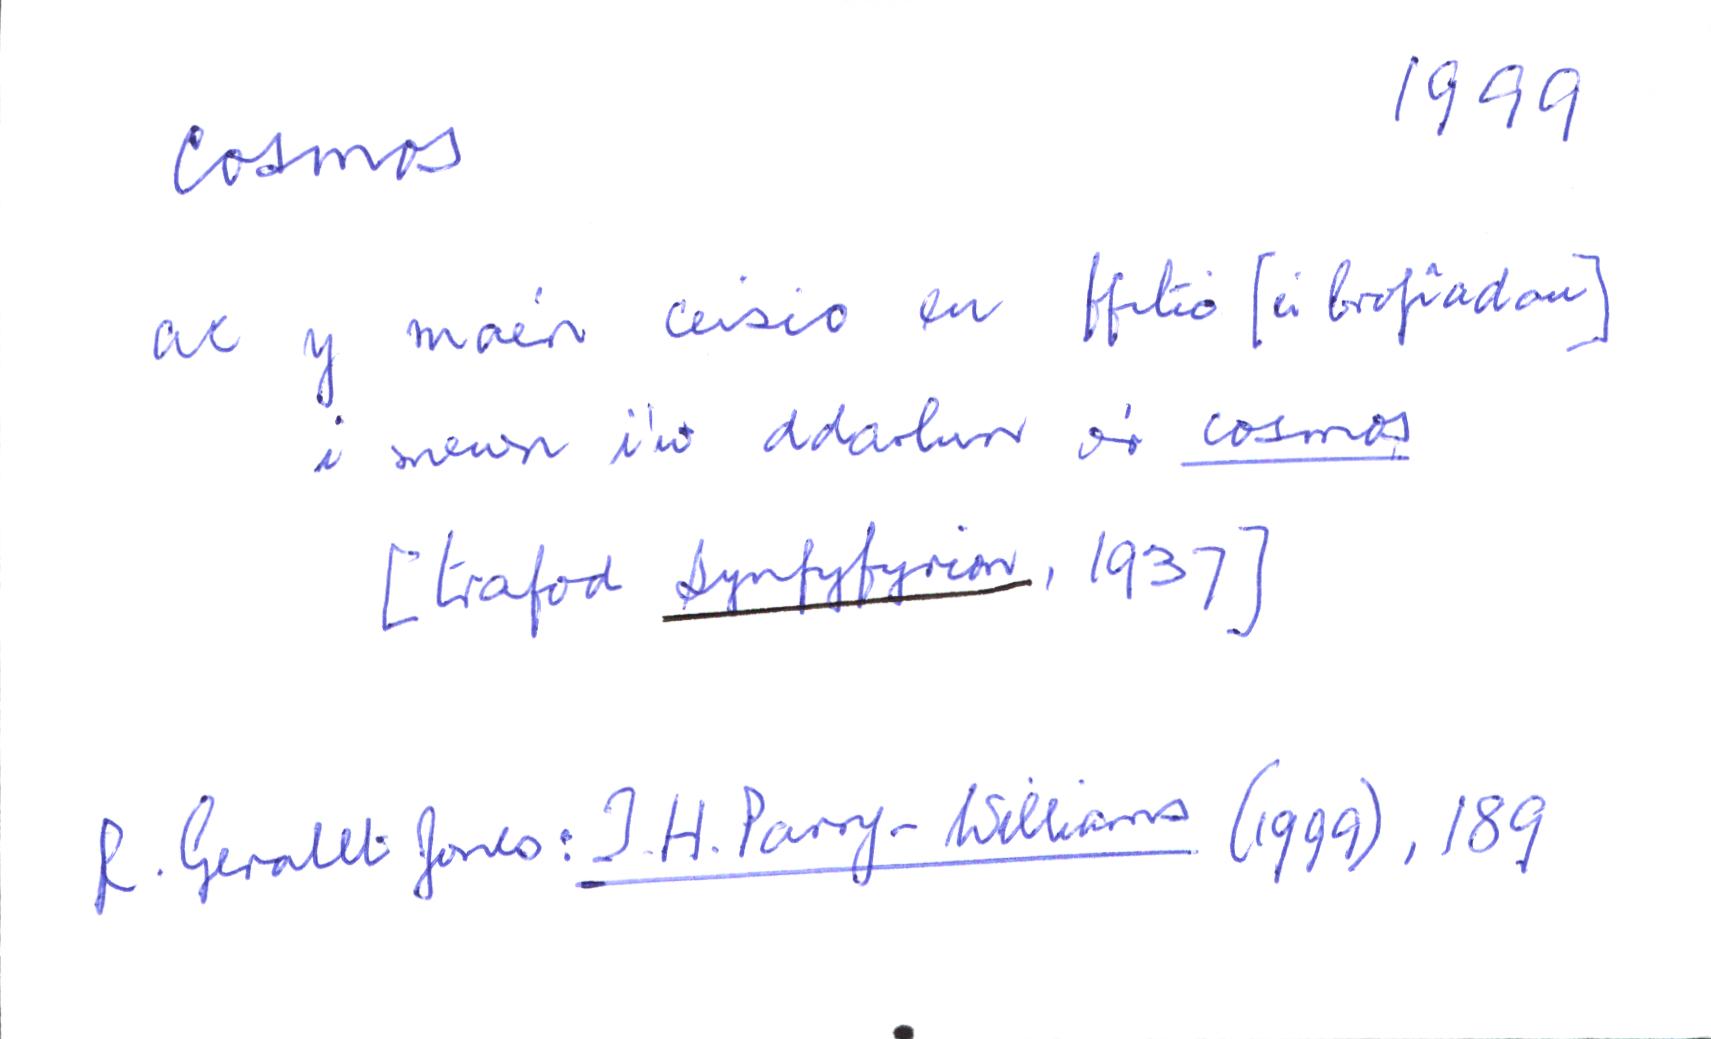 1999
cosmos
ac y mae'n ceisio eu ffitio [ei brofiadau]
i mewn i'w ddarlun o'r cosmos
[trafod Synfyfyrion, 1937]
R. Gerallt Jones: T.H. Parry-Williams (1999), 189